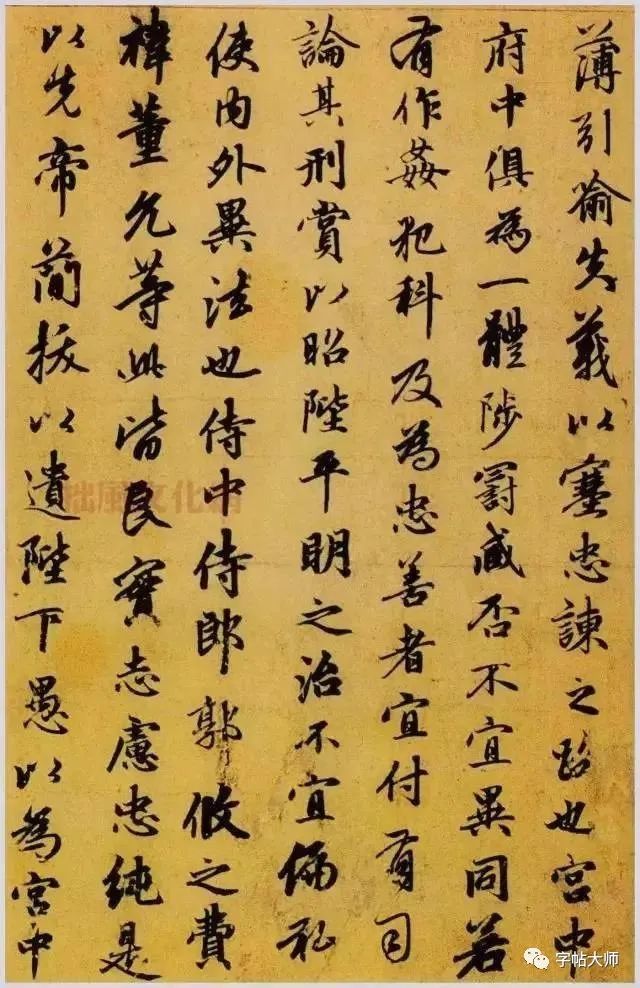 薄引喻失義以塞忠諫之路也宮中
府中俱為一體陟罰臧否不宜異同若
有作姦犯科及為忠善者宜付有司
論其刑賞以昭陛平明之治不宜偏私
使內外異法也侍中侍郎郭攸之費
禕董允等此皆良實志慮忠純是
以先帝簡拔以遺陛下愚以為宮中
拙風文化網
字帖大师